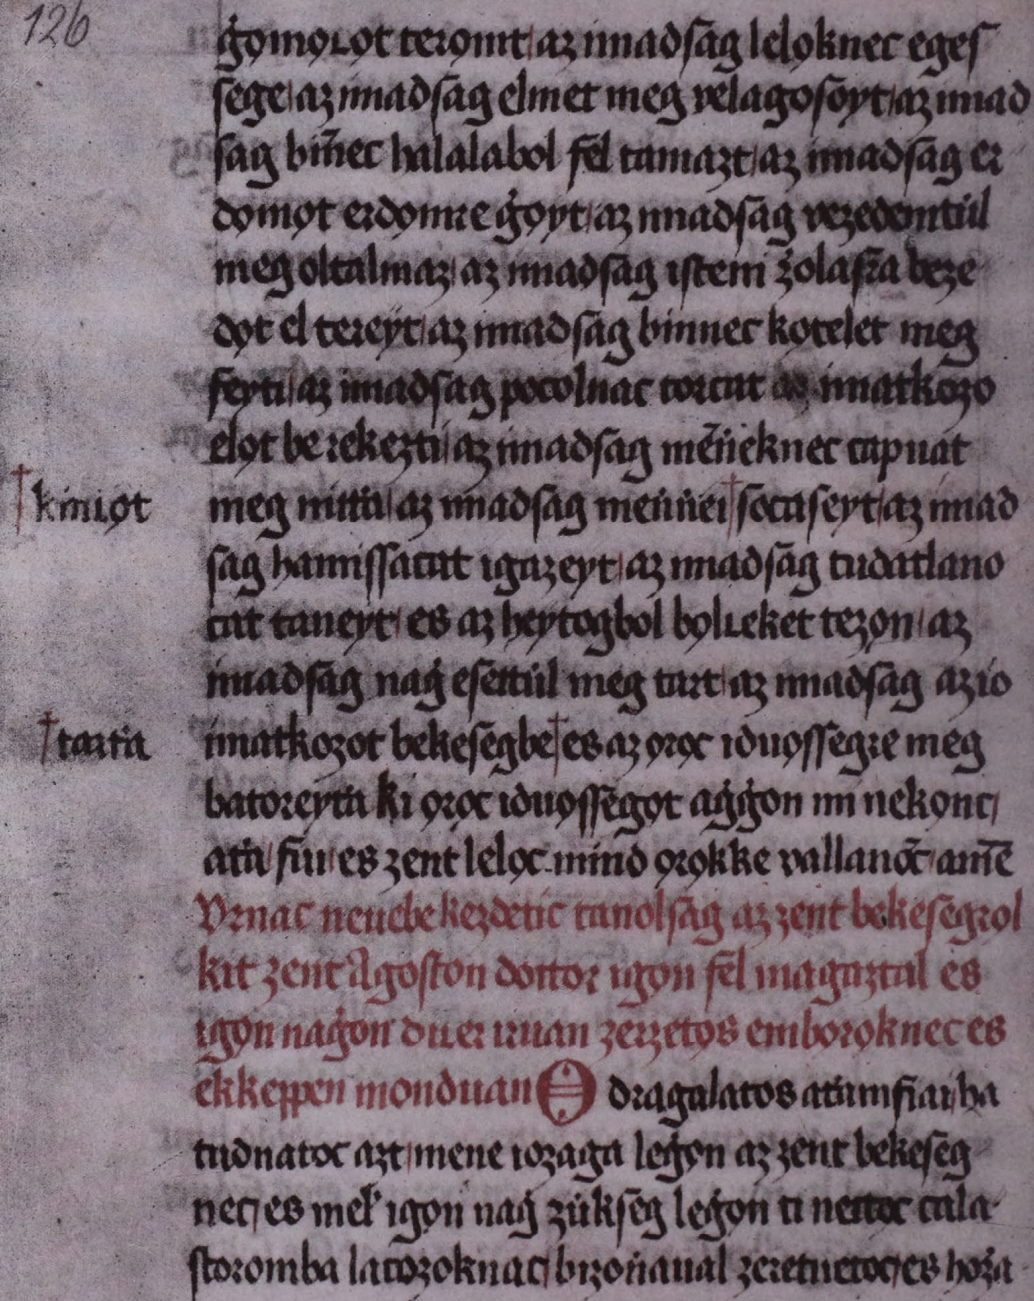 126
ġomoꝛot teꝛomt az imadſag leloknec egeſ
ſege az imadſag elmet meg velagoſoyt az imad
ſag bin̄ec halalabol fel tamazt az imadſag er
domot erdomre ġoyt az imadſag vezedemtül
meg oltalmaz az imadſag iſtem z̄olaſra beze
dot el tereyt az imadſag binnec kotelet meg
feyti az imadſag pocolnac torcat az imatkozo
elot be rekezti az imadſag men̄ieknec capuat
† kiniot
meg nitia az imadſag menńei † ſocaſeyt az imad
ſag hamiſſacat igazeyt az imadſag tudatlano
cat taneyt es az heytogbol bylceket tezon az
imadſag naġ eſettül meg tart az imadſag azio
† tartia
imatkozot bekeſegbe † es az oroc iduoſſegre meg
batoreyta ki oroc iduoſſegot aġġon mi nekonc
atia fiu es zent leloc mind orokke vallanoc̄ amē
Vrnac neuebe kezdetic tanolſag az zent bekeſegrol
kit zent Agoſton doctor igon fel magaztal es
igon naġon diċer iruan zerzetos emboroknec es
ekkeppen monduan O dragalatos atiamfiai ha
tudnatoc azt mene iozaga leġon az zent bekeſeg
nec es mel' igon naġ zükſeg leġon ti nectoc cala
ſtoromba lacozoknac bizońaual zeretnetoc es hoz̄a